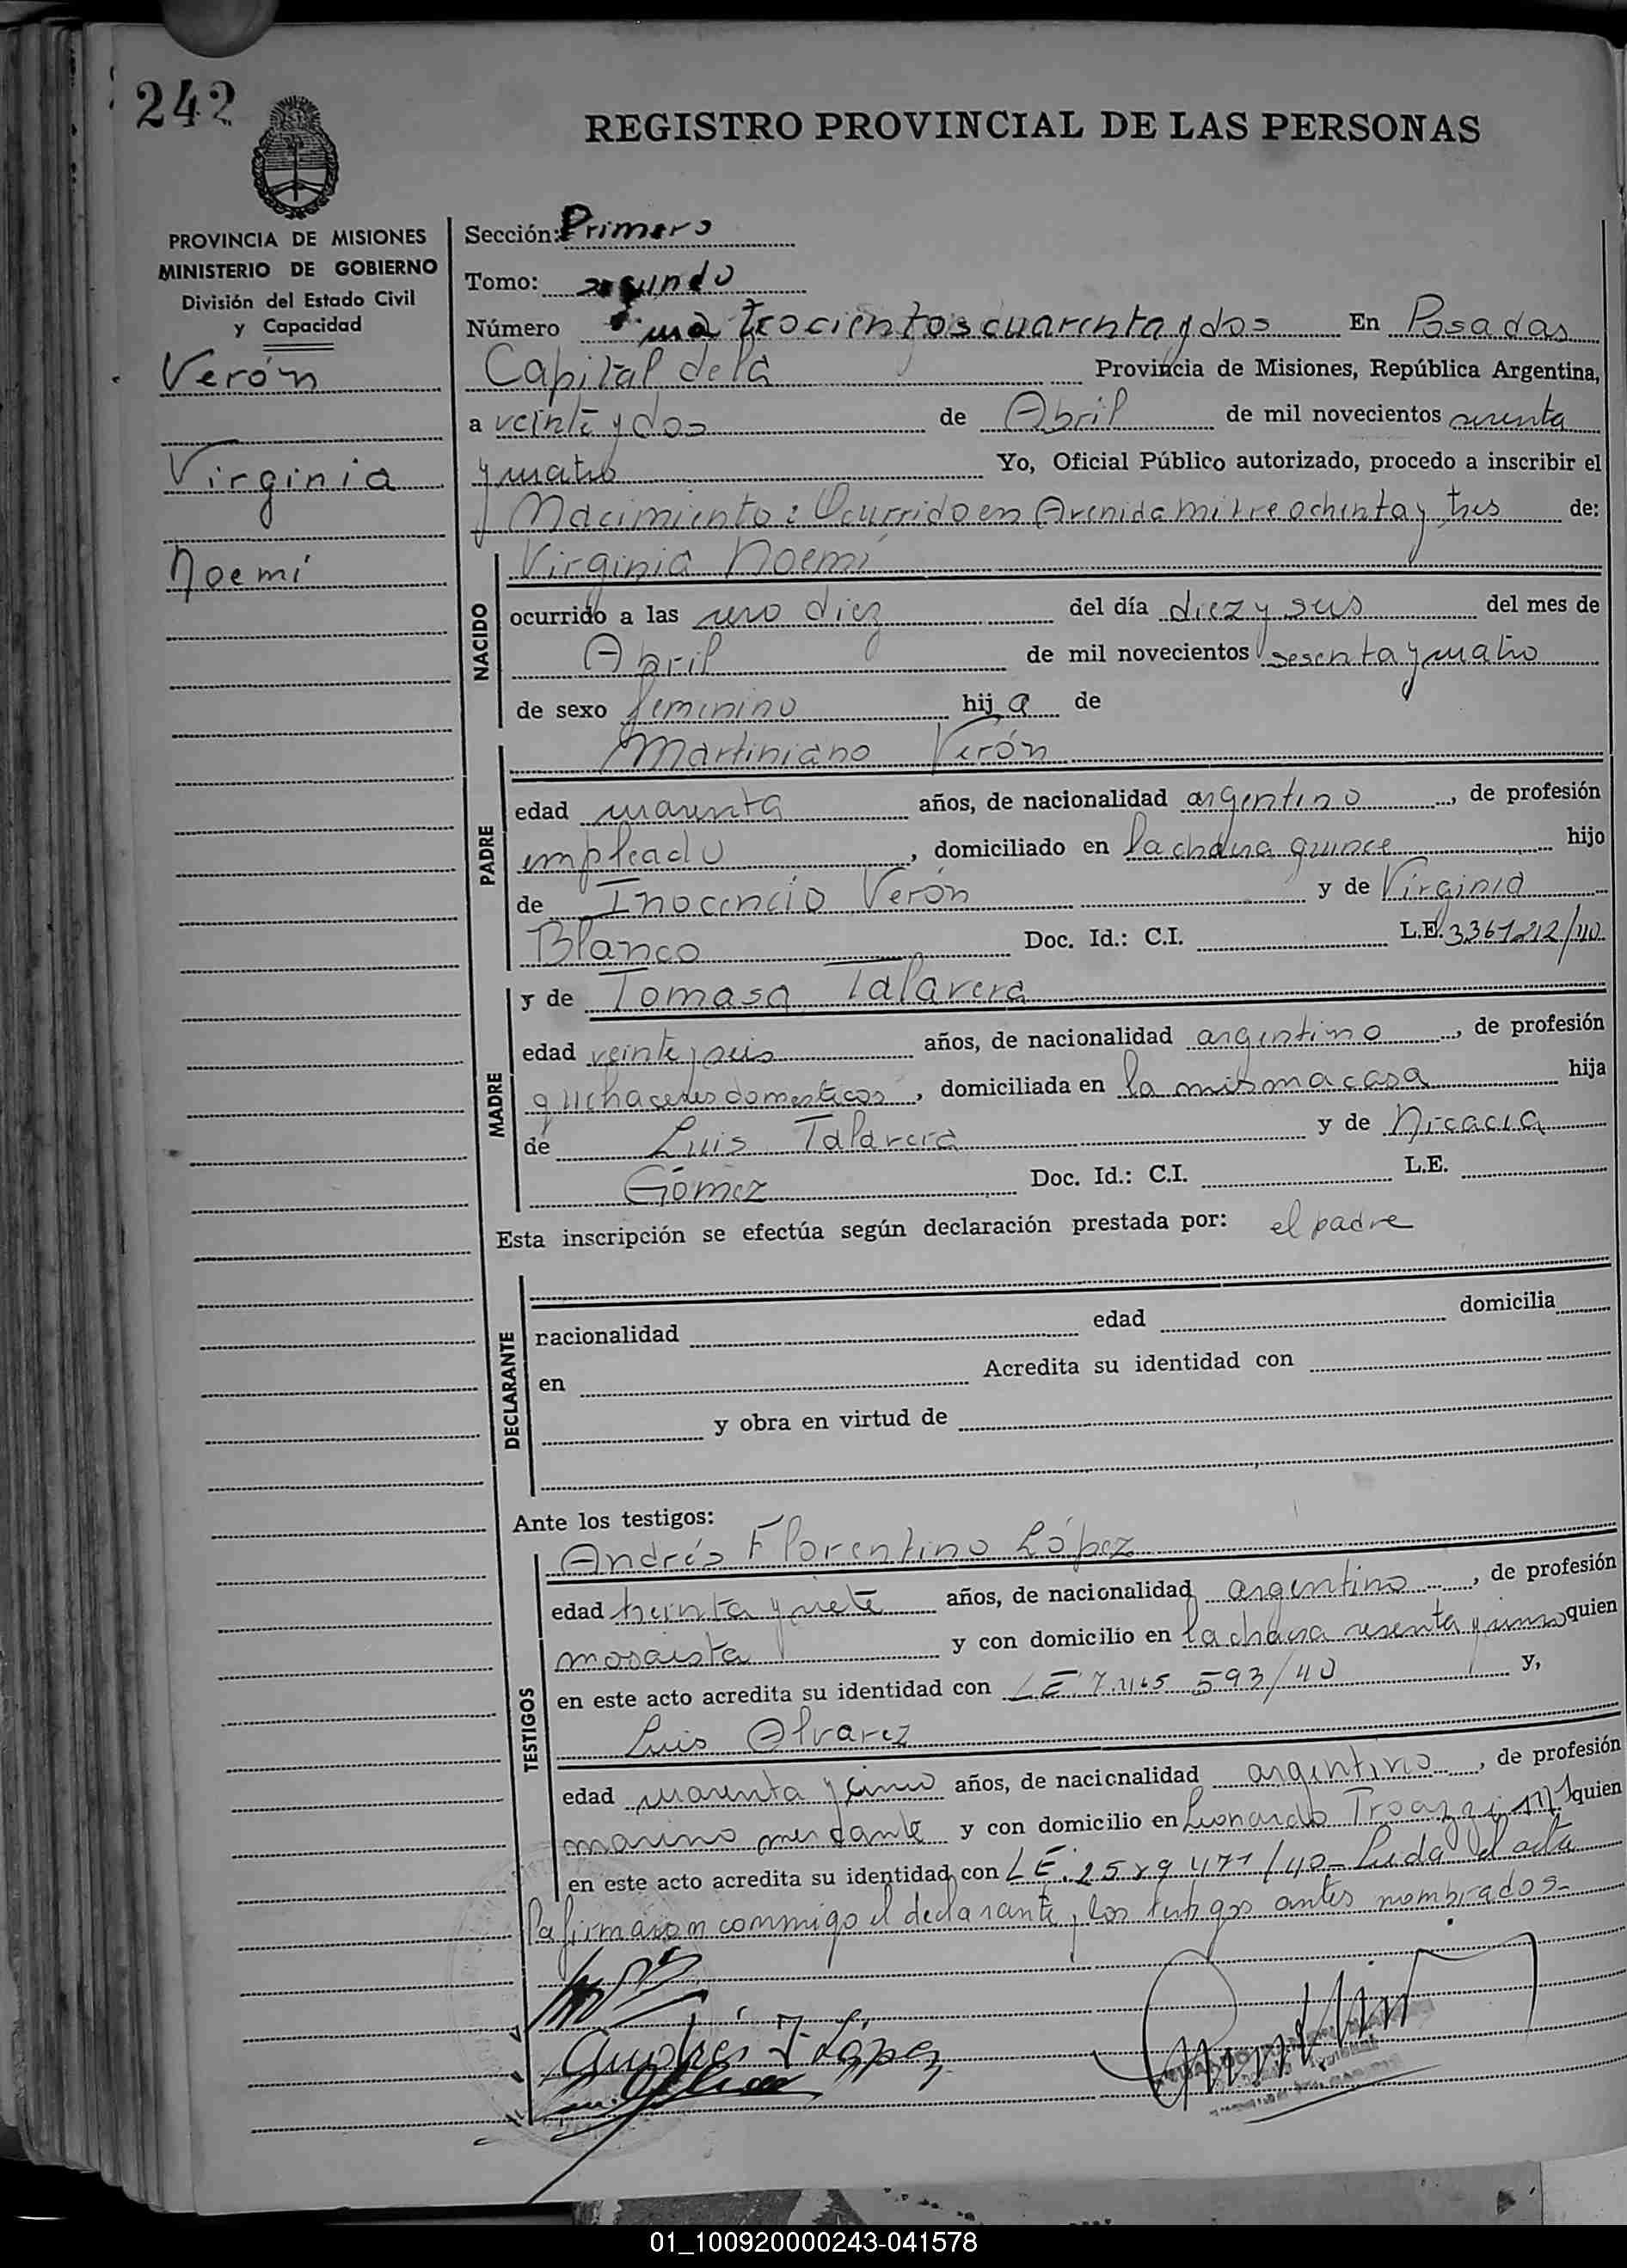 242
REGISTRO PROVINCIAL DE LAS PERSONAS
PROVINCIA DE MISIONES
MINISTERIO DE GOBIERNO
División del Estado Civil
y Capacidad
Verón
Virginia
Noemí
Sección: Primero
Tomo: segundo
Número cuatrocientos cuarenta y dos En Posadas
Capital de la Provincia de Misiones, República Argentina,
a veinte y dos de Abril de mil novecientos sesenta
y cuatro Yo, Oficial Público autorizado, procedo a inscribir el
Nacimiento: Ocurrido en Avenida mitre ochenta y tres de:
Virginia Noemí
NACIDO
ocurrido a las uno diez del día diez y seis del mes de
Abril de mil novecientos sesenta y cuatro
de sexo femenino hija de
Martiniano Verón
PADRE
edad cuarenta años, de nacionalidad argentino, de profesión
empleado, domiciliado en la chacra quince hijo
de Inocencio Verón y de Virginia
Blanco Doc. Id.: C.I. L.E.
y de Tomasa Talavera
MADRE
edad veinte y seis años, de nacionalidad argentino, de profesión
quehaceres domesticos, domiciliada en la misma casa hija
de Luis Talavera y de Nicacia
Gómez Doc. Id.: C.I. L.E.
Esta inscripción se efectúa según declaración prestada por: el padre
DECLARANTE
nacionalidad edad domicilia
en Acredita su identidad con
y obra en virtud de
Ante los testigos:
Andrés Florentino López
TESTIGOS
edad treinta y siete años, de nacionalidad argentino, de profesión
mosaista y con domicilio en la chacra sesenta y quien
en este acto acredita su identidad con LE. 593/40 y,
Luis Alvarez
edad cuarenta y cinco años, de nacionalidad argentino, de profesión
marino mercante y con domicilio en Leonardo quien
en este acto acredita su identidad con LE. Leida el acta
la firmaron conmigo el declarante y los testigos antes nombrados-
Andrés F. López
01_100920000243-041578